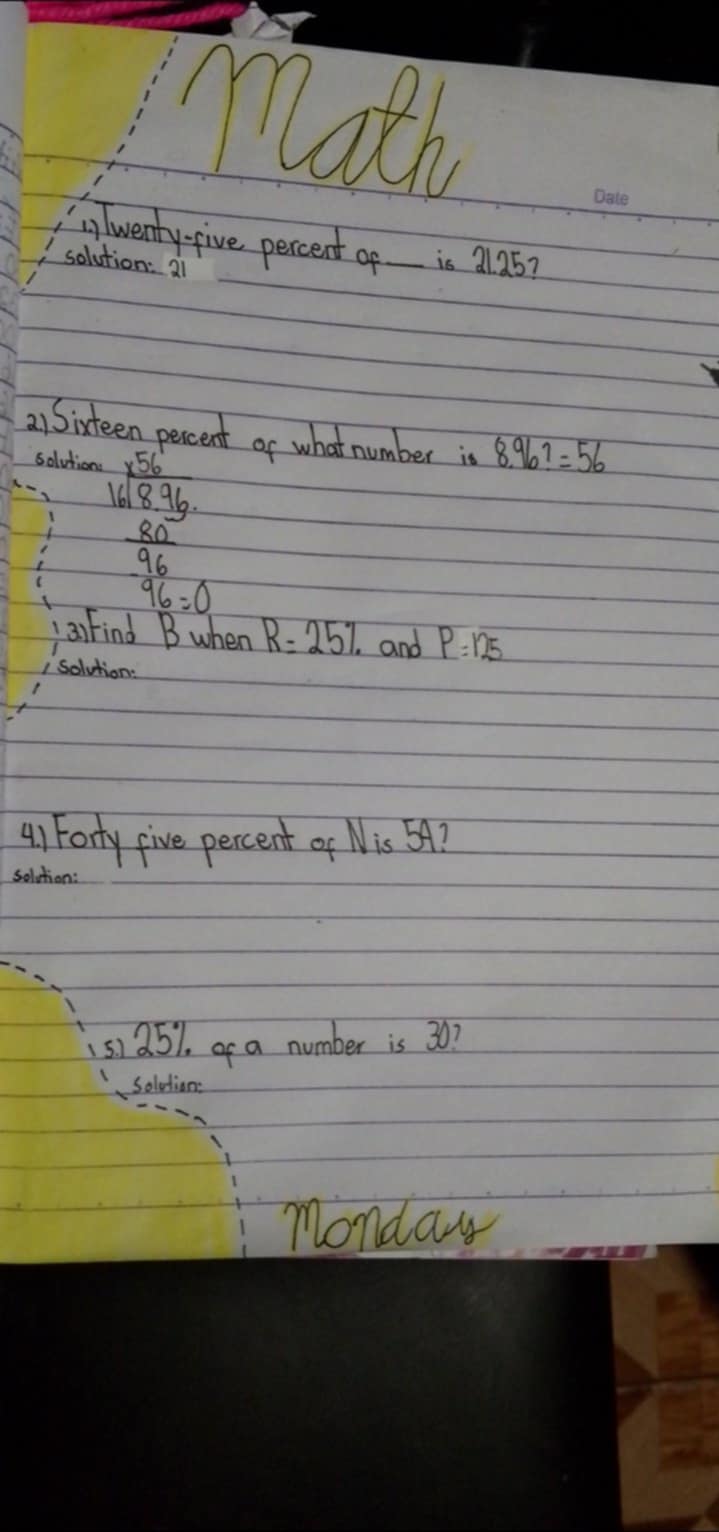 Math
Date
1.) Twenty-five percent of __ is 21.25?
solution: 21
2.) Sixteen percent of what number is 8.96? = 56
solution: x56
16/8.96.
80
96
96=0
3.) Find B when R= 25% and P=125
Solution:
4.) Forty five percent of N is 54?
Solution:
5.) 25% of a number is 30?
Solution:
Monday